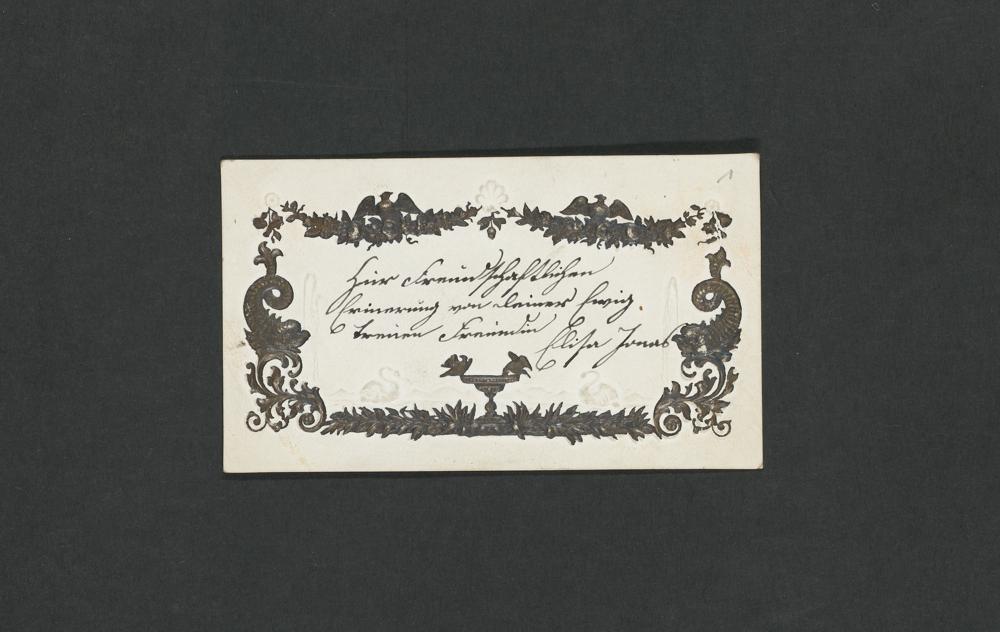 Zur Freundschaftlichen
Erinerung von deiner Ewig
treuen Freundin
Elisa Jonas
1